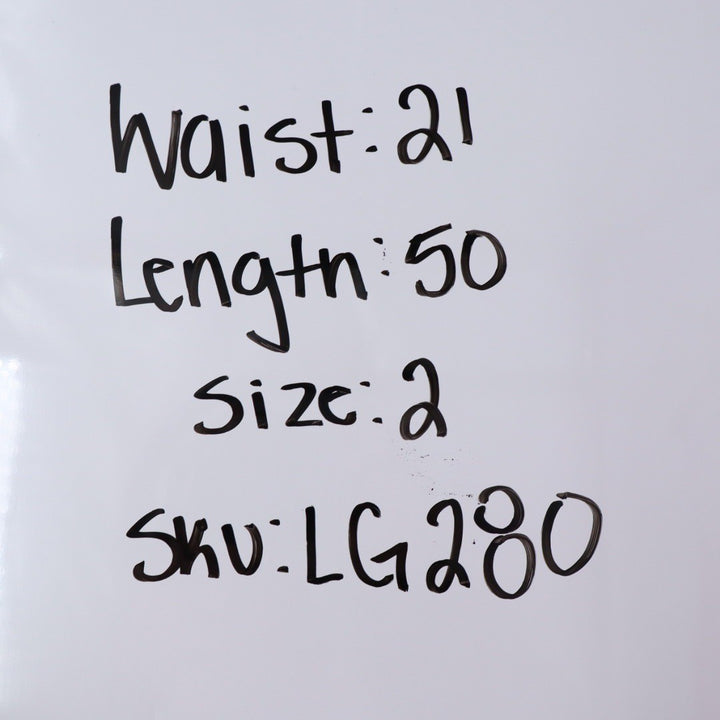 Waist: 21
Length: 50
Size: 2
SKU: LG280